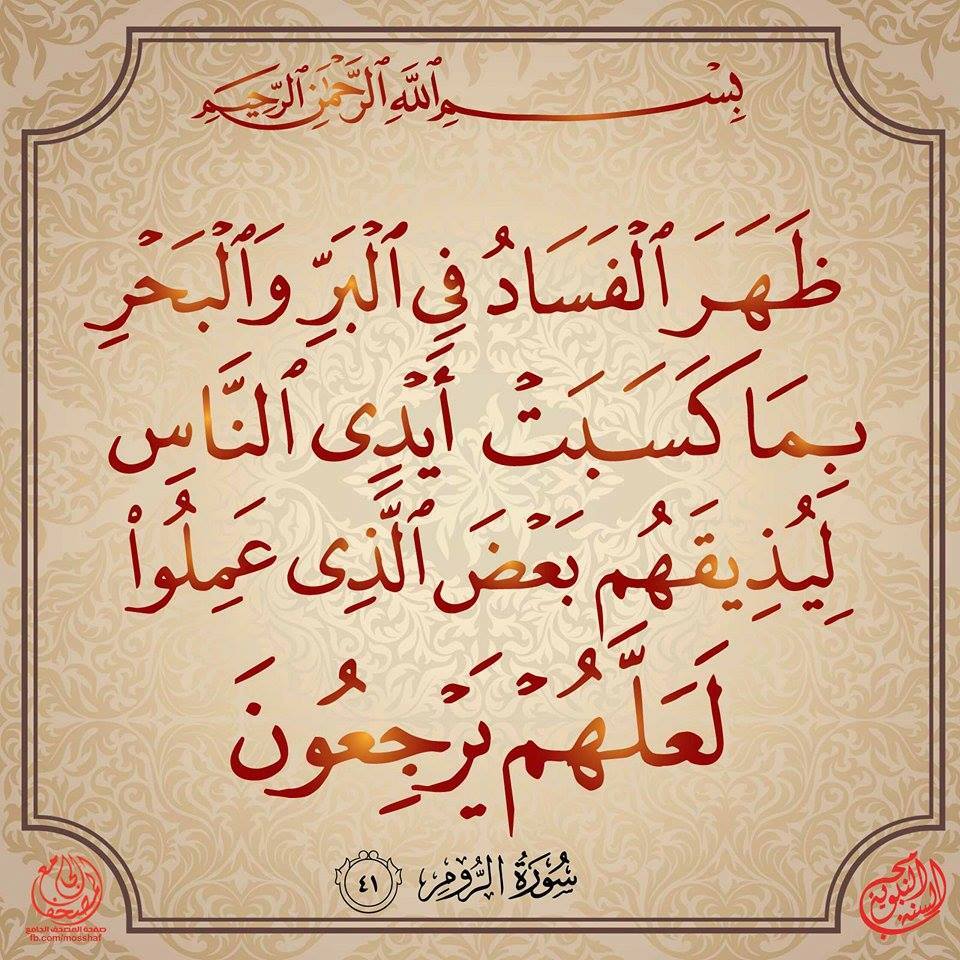 بِسْمِ ٱللَّهِ ٱلرَّحْمَٰنِ ٱلرَّحِيمِ
ظَهَرَ ٱلْفَسَادُ فِي ٱلْبَرِّ وَٱلْبَحْرِ
بِمَا كَسَبَتْ أَيْدِى ٱلنَّاسِ
لِيُذِيقَهُم بَعْضَ ٱلَّذِى عَمِلُوا۟
لَعَلَّهُمْ يَرْجِعُونَ
سُورَةُ الرُّومِ ٤١
المصحف الجامع
صفحة المصحف الجامع
fb.com/mosshaf
السنة النبوية